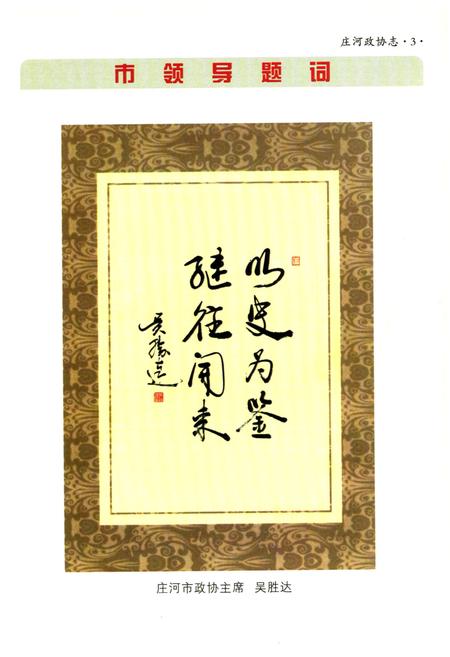 庄河政协志·3·
市领导题词
以史为鉴
继往开来
吴胜达
庄河市政协主席 吴胜达